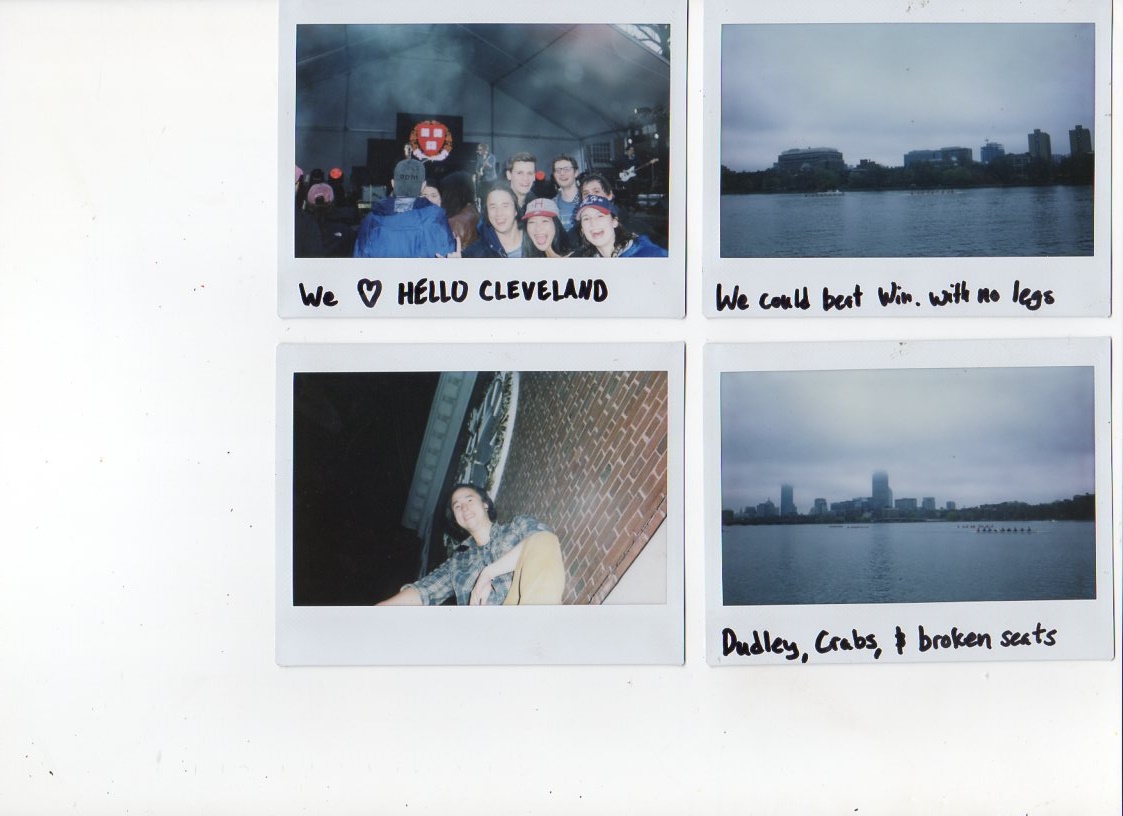 We ♡ HELLO CLEVELAND
We could beat Win. with no legs
Dudley, Crabs, & broken seats